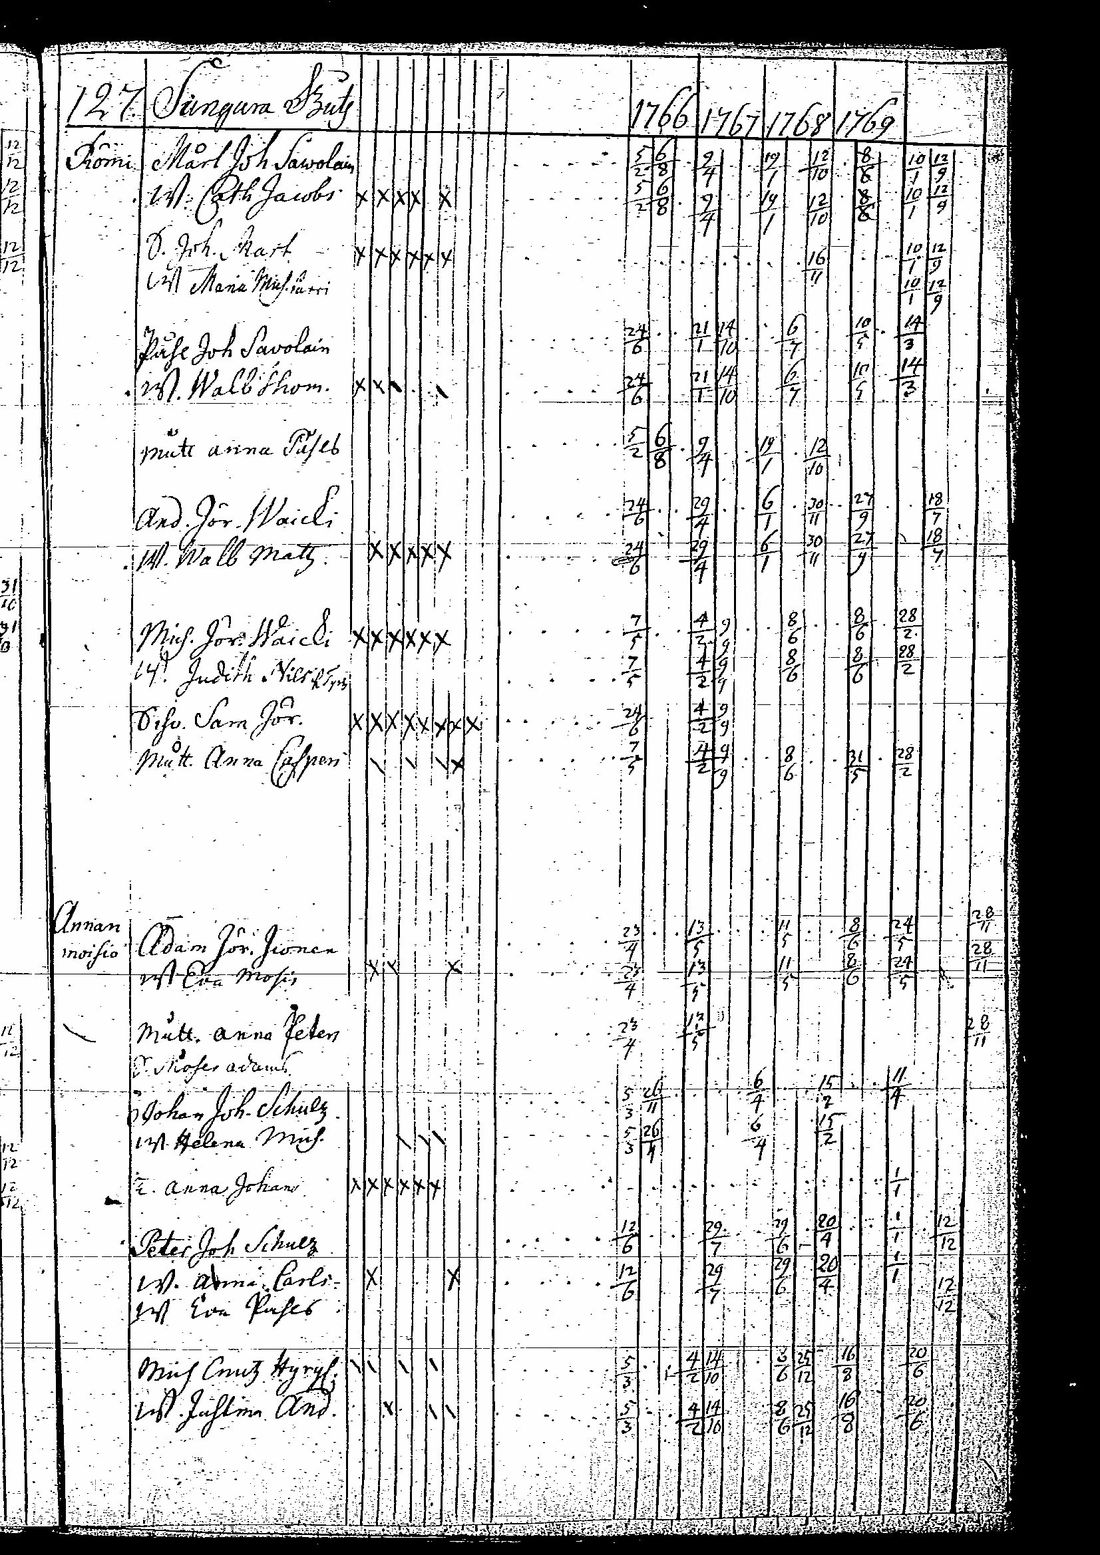 127 Sungura Byts 1766 1767 1768 1769
Römi Mårt Joh Sawolain 5/2 6/8 9/4 19/1 12/10 8/8 10/1 12/9
W. Cath Jacobs x x x x x 5/2 6/8 9/4 19/1 12/10 8/8 10/1 12/9
S. Joh. Mart x x x x x x 16/11 10/1 12/9
W Maria Mich. 10/1 12/9
Påhl Joh Savolain 24/6 21/1 14/10 6/7 10/5 14/3
W. Walb Thom. x x 24/6 21/1 14/10 6/7 10/5 14/3
mutt anna Påhls 5/2 6/8 9/4 19/1 12/10
And. Jör. Waicki 24/6 29/4 6/1 30/11 27/9 18/7
W. Walb Matts x x x x x 24/6 29/4 6/1 30/11 27/9 18/7
Mich. Jör. Waicki x x x x x x 7/5 4/2 9/9 8/6 8/6 28/2
W. Judith Nils 7/5 4/2 9/9 8/6 8/6 28/2
Sam Jör. x x x x x x x x 24/6 4/2 9/9
Mutt. Anna Casperi 7/5 4/2 9/9 8/6 31/5 28/2
Annan
moisio Adam Jör. Jionen 23/4 13/5 11/5 8/6 24/5 28/11
W Eva Mosis x x x 23/4 13/5 11/5 8/6 24/5 28/11
Mutt. anna Peters 23/4 13/5 28/11
S. Moses adams
Johan Joh. Schulz 5/3 26/11 6/4 15/2 11/4
W Helena Mich. 5/3 26/11 6/4 15/2
anna Johans x x x x x x 1/1
Peter Joh Schulz 12/6 29/7 29/6 20/4 1/1 12/12
W. anna Carls x x 12/6 29/7 29/6 20/4 1/1
W Eva Påhls 12/12
Mich Cnutz Hyryl. 5/3 4/2 14/10 8/6 25/12 16/8 20/6
W. Justina And. 5/3 4/2 14/10 8/6 25/12 16/8 20/6